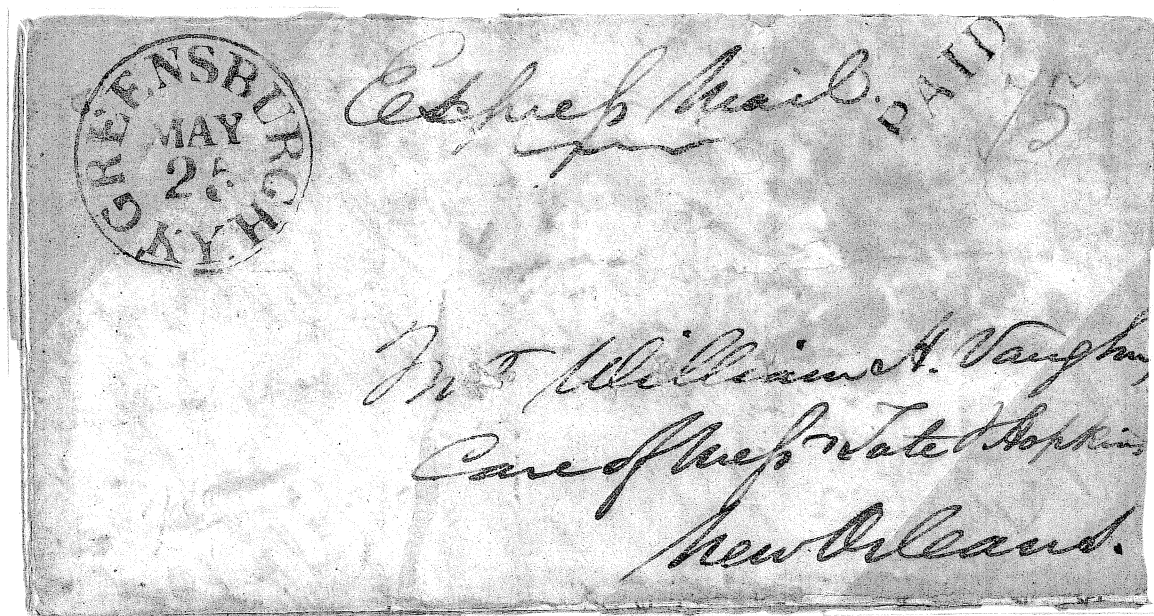 GREENSBURGH, KY
MAY
25
Express Mail.
PAID
75
Mr William H. Vaughn,
Care of Mess Tate & Hopkins,
New Orleans.